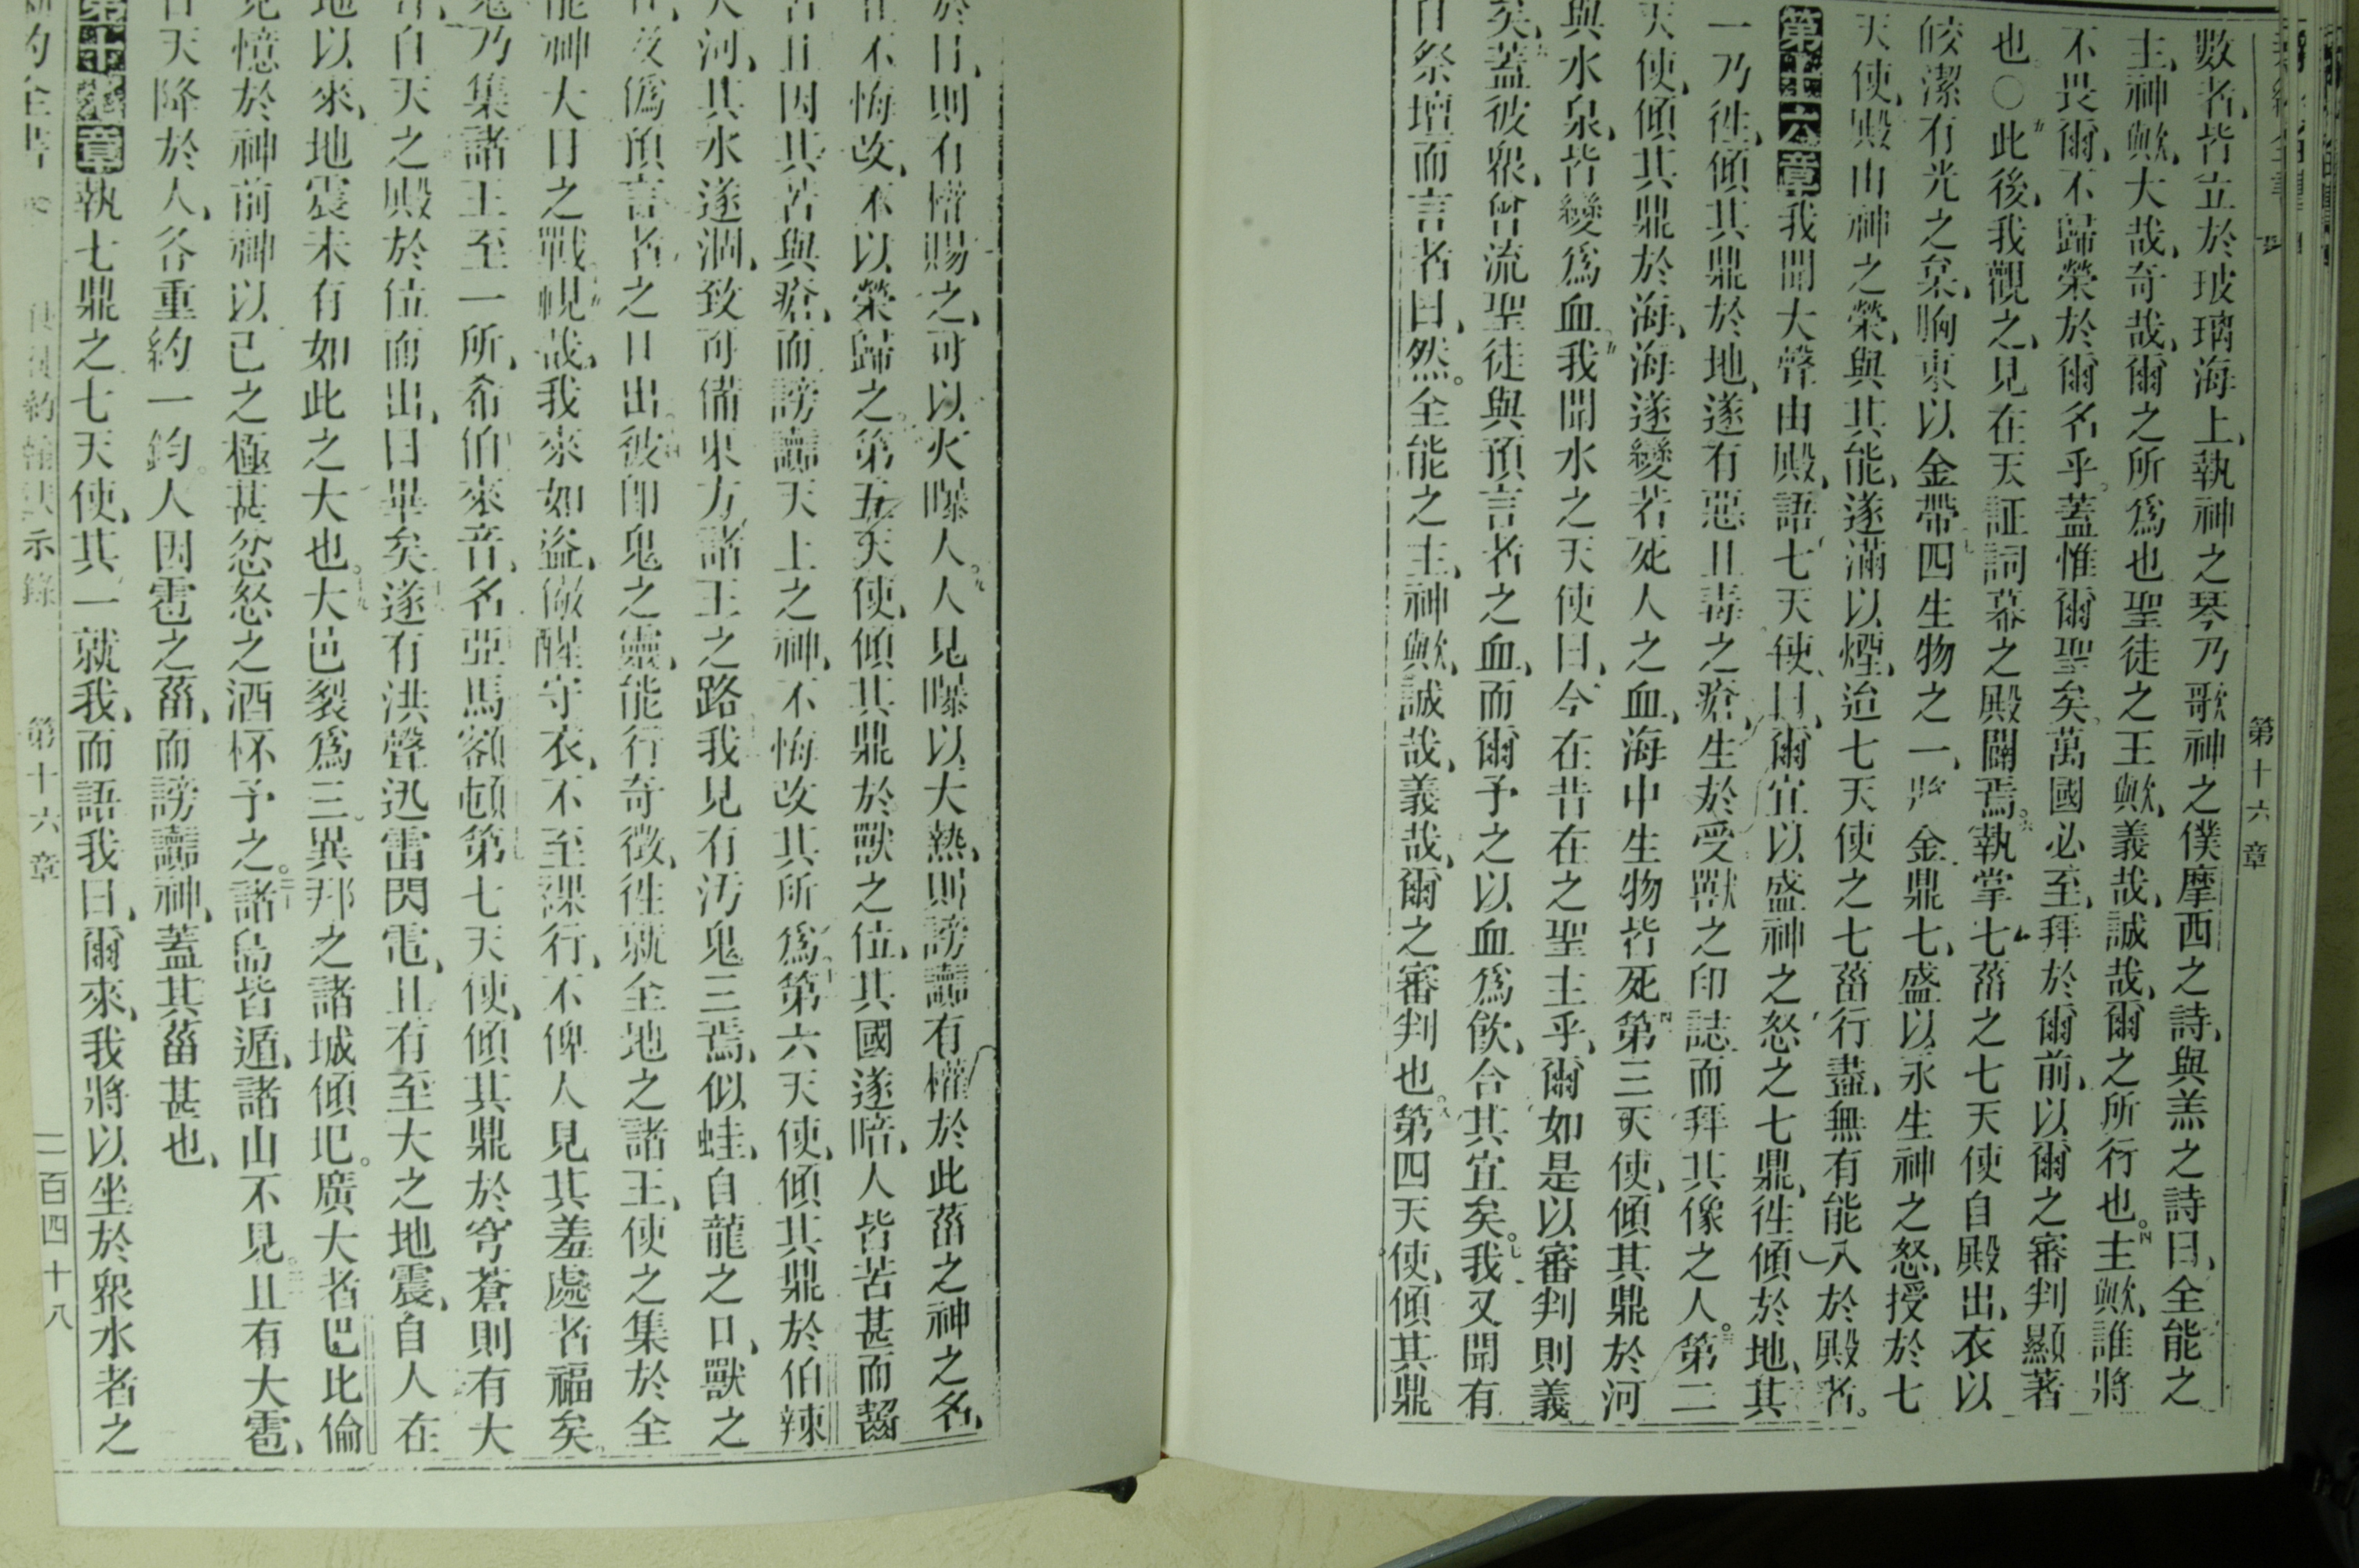 第十六章
數者、皆立於玻璃海上、執神之琴乃歌神之僕摩西之詩、與羔之詩曰、全能之
主神歟、大哉、奇哉、爾之所爲也聖徒之王歟、義哉、誠哉、爾之所行也。主歟、誰將
不畏爾、不歸榮於爾名乎。蓋惟爾聖矣、萬國必至、拜於爾前、以爾之審判顯著
也。○此後、我觀之、見在天証詞幕之殿闢焉。執掌七菑之七天使自殿出、衣以
皎潔有光之枲、胸束以金帶四生物之一、將金鼎七、盛以永生神之怒、授於七
天使、殿由神之榮、與其能、遂滿以煙、迨七天使之七菑行盡、無有能入於殿者。
第十六章我聞大聲由殿、語七天使、曰、爾宜以盛神之怒之七鼎、徃傾於地、其
一乃徃、傾其鼎於地、遂有惡且毒之瘡、生於受獸之印誌而拜其像之人。第二
天使、傾其鼎於海、海遂變若死人之血、海中生物皆死第三天使、傾其鼎於河
與水泉、皆變爲血。我聞水之天使曰、今在昔在之聖主乎、爾如是以審判則義
矣、蓋彼衆、曾流聖徒與預言者之血、而爾予之以血爲飮、合其宜矣。我又聞有
自祭壇而言者曰、然。全能之主神歟、誠哉、義哉、爾之審判也。第四天使、傾其鼎
於日、則有權賜之、可以火曝人。人見曝以大熱、則謗讟有權於此菑之神之名、
不悔改、不以榮歸之。第五天使、傾其鼎於獸之位、其國遂暗、人皆苦甚而齧
且因其苦與瘡、而謗讟天上之神、不悔改其所爲。第六天使、傾其鼎於伯辣
大河、其水遂涸、致可備東方諸王之路我見有汚鬼三焉、似蛙、自龍之口、獸之
及僞預言者之口出。彼卽鬼之靈、能行奇徵、徃就全地之諸王、使之集於全
能神大日之戰。視哉、我來如盜、儆醒守衣、不至裸行、不俾人見其羞處者福矣。
鬼乃集諸王至一所、希伯來音、名亞馬額頓第七天使、傾其鼎於穹蒼則有大
自天之殿於位而出、曰畢矣遂有洪聲迅雷閃電、且有至大之地震、自人在
地以來、地震未有如此之大也。大邑裂爲三。異邦之諸城傾圯。廣大者巴比倫
見憶於神前神以己之極甚忿怒之酒杯予之。諸島皆遁、諸山不見。且有大雹、
自天降於人、各重約一鈞。人因雹之菑、而謗讟神、蓋其菑甚也、
章執七鼎之七天使、其一就我、而語我曰、爾來、我將以坐於衆水者之
約全書 示錄 第十六章 二百四十八